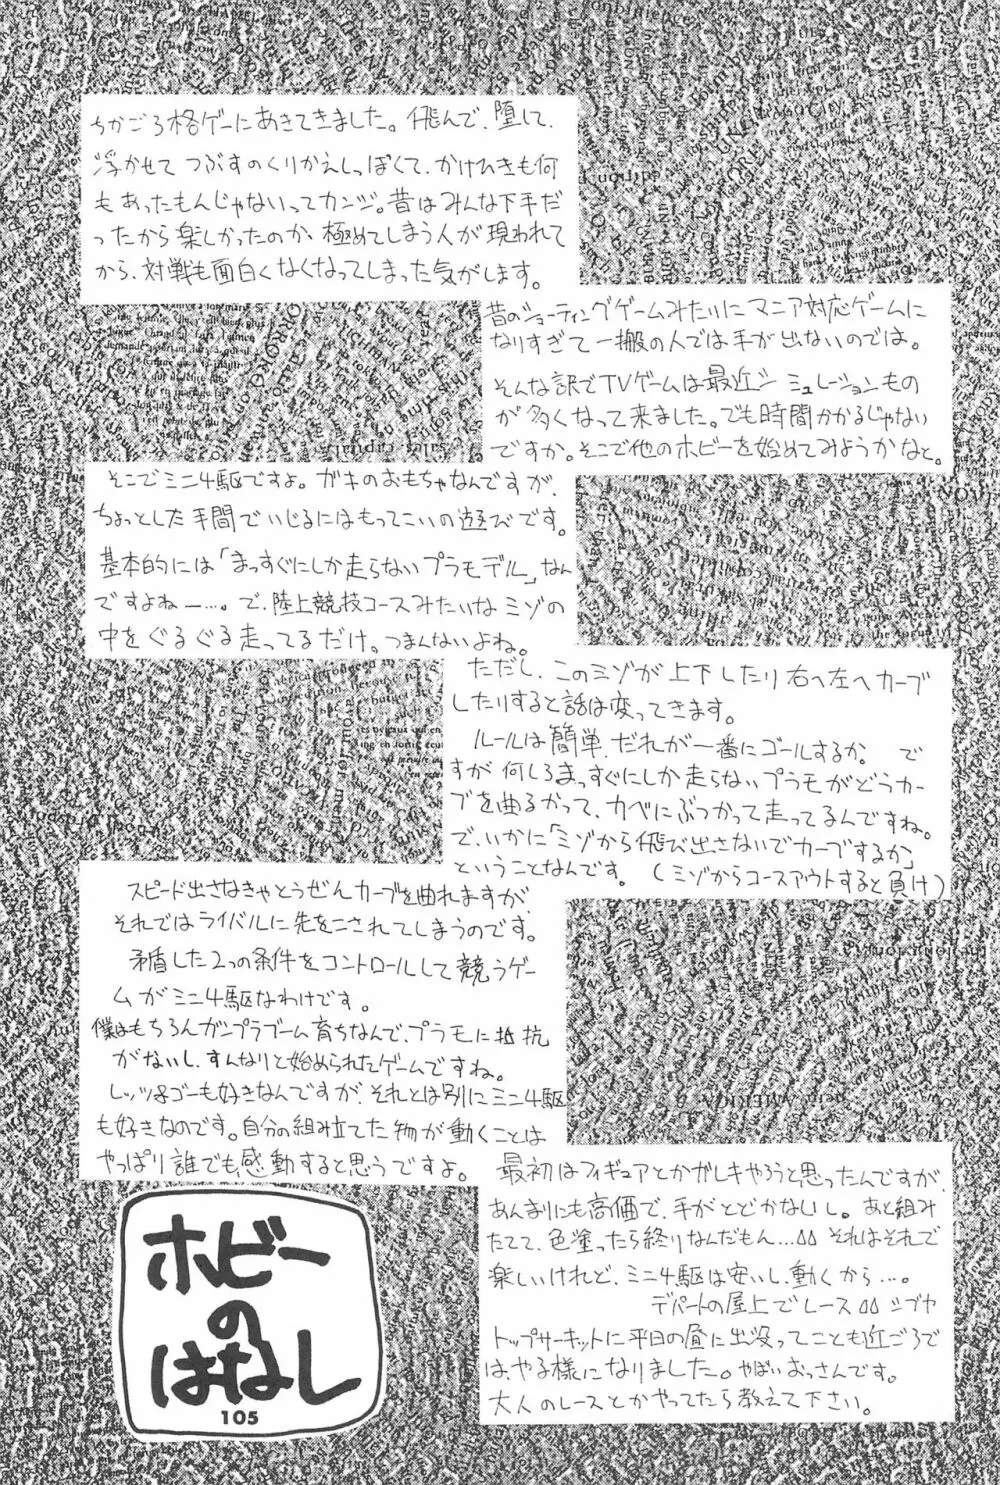 ちかごろ格ゲーにあきてきました。飛んで、堕して、
浮かせて つぶすのくりかえしっぽくて、かけひきも何
もあったもんじゃないってカンジ。昔はみんな下手だ
ったから楽しかったのか、極めてしまう人が現われて
から、対戦も面白くなくなってしまった気がします。
昔のシューティングゲームみたいにマニア対応ゲームに
なりすぎて一搬の人では手が出ないのでは。
そんな訳でTVゲームは最近シミュレーションもの
が多くなって来ました。でも時間かかるじゃない
ですか。そこで他のホビーを始めてみようかなと。
そこでミニ4駆ですよ。ガキのおもちゃなんですが、
ちょっとした手間でいじるにはもってこいの遊びです。
基本的には「まっすぐにしか走らないプラモデル」なん
ですよねー…。で、陸上競技コースみたいなミゾの
中をぐるぐる走ってるだけ。つまんないよね。
ただし、このミゾが上下したり右へ左へカーブ
したりすると話は変ってきます。
ルールは簡単、だれが一番にゴールするか。で
すが何しろまっすぐにしか走らないプラモがどうカー
ブを曲るかって、カベにぶつかって走ってるんですね。
で、いかに「ミゾから飛び出さないでカーブするか」
ということなんです。(ミゾからコースアウトすると負け)
スピード出さなきゃとうぜんカーブを曲れますが、
それではライバルに先をこされてしまうのです。
矛盾した2つの条件をコントロールして競うゲー
ムがミニ4駆なわけです。
僕はもちろんガンプラブーム育ちなんで、プラモに抵抗
がないし、すんなりと始められたゲームですね。
レッツ&ゴーも好きなんですが、それとは別にミニ4駆
も好きなのです。自分の組み立てた物が動くことは
やっぱり誰でも感動すると思うですよ。
最初はフィギュアとかガレキやろうと思ったんですが、
あんまりにも高価で、手がとどかないし。あと組み
たてて、色塗ったら終りなんだもん…。それはそれで
楽しいけれど、ミニ4駆は安いし、動くから…。
デパートの屋上でレース シブヤ
トップサーキットに平日の昼に出没ってことも近ごろで
は、やる様になりました。やばいおっさんです。
大人のレースとかやってたら教えて下さい。
ホビー
の
はなし
105